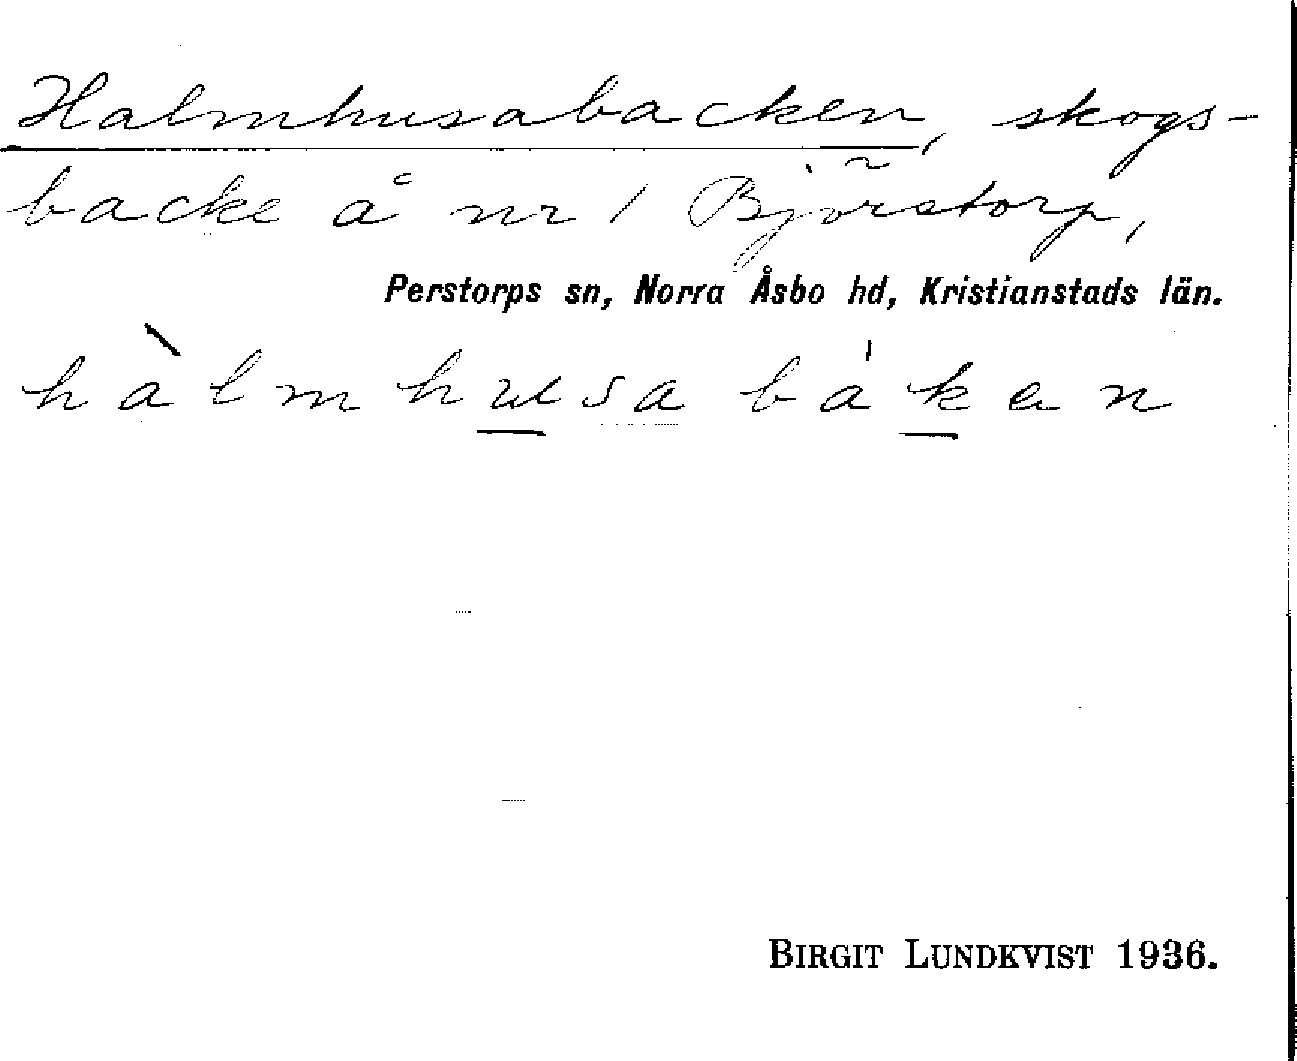 Halmhusabacken, skogs-
backe å nr 1 Björstorp,
Perstorps sn, Norra Åsbo hd, Kristianstads län.
hàlmhu̲sa bák̲en
BIRGIT LUNDKVIST 1936.